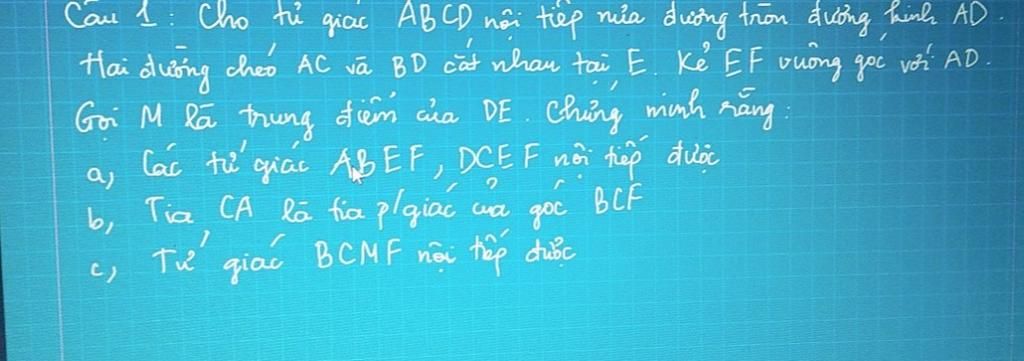 Câu 1: Cho tứ giác ABCD nội tiếp nửa đường tròn đường kính AD.
Hai đường chéo AC và BD cắt nhau tại E. Kẻ EF vuông góc với AD.
Gọi M là trung điểm của DE. Chứng minh rằng:
a, Các tứ giác ABEF, DCEF nội tiếp được
b, Tia CA là tia p/giác của góc BCF
c, Tứ giác BCMF nội tiếp được